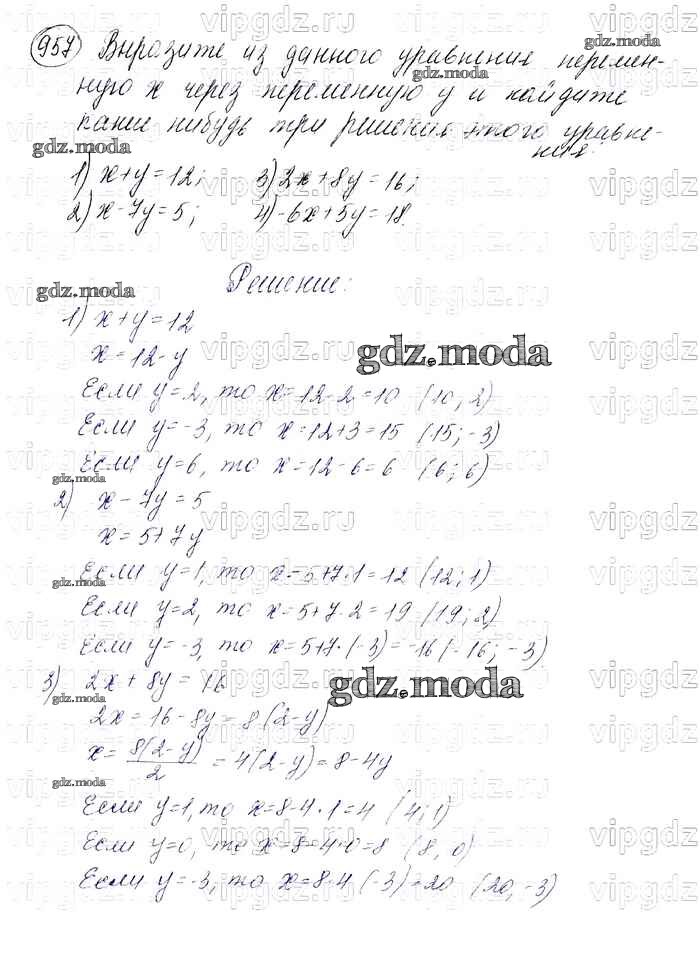 957 Выразите из данного уравнения перемен-
ную x через переменную y и найдите
какие нибудь три решения этого уравне-
ния:
1) x+y=12; 3) 2x+8y=16;
2) x-7y=5; 4) -6x+5y=18.
Решение:
1) x+y=12
x=12-y
Если y=2, то x=12-2=10 (10; 2)
Если y=-3, то x=12+3=15 (15; -3)
Если y=6, то x=12-6=6 (6; 6)
2) x-7y=5
x=5+7y
Если y=1, то x=5+7·1=12 (12; 1)
Если y=2, то x=5+7·2=19 (19; 2)
Если y=-3, то x=5+7·(-3)=-16 (-16; -3)
3) 2x+8y=16
2x=16-8y=8(2-y)
x=8(2-y)/2=4(2-y)=8-4y
Если y=1, то x=8-4·1=4 (4; 1)
Если y=0, то x=8-4·0=8 (8, 0)
Если y=-3, то x=8-4·(-3)=20 (20, -3)
gdz.moda
vipgdz.ru